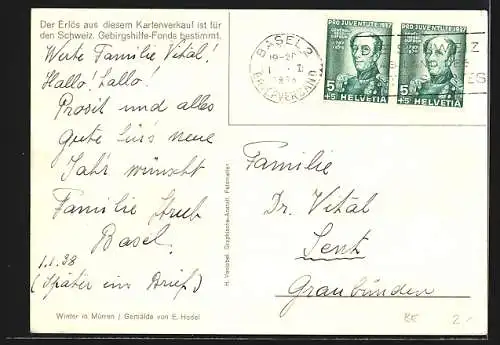 Der Erlös aus diesem Kartenverkauf ist für
den Schweiz. Gebirgshilfe-Fonds bestimmt.
Werte Familie Vital!
Hallo! Lallo!
Prosit und alles
Gute für's neue
Jahr wünscht
Familie Strub
Basel.
1.1.38
(Später ein Brief)
Winter in Mürren / Gemälde von E. Hodel
H. Vontobel, Graphische-Anstalt, Feldmeilen
BASEL 2
BRIEFVERSAND
PRO JUVENTUTE 1937
5
+5 HELVETIA
PRO JUVENTUTE 1937
5
+5 HELVETIA
Familie
Dr. Vital
Sent
Graubünden
2.-